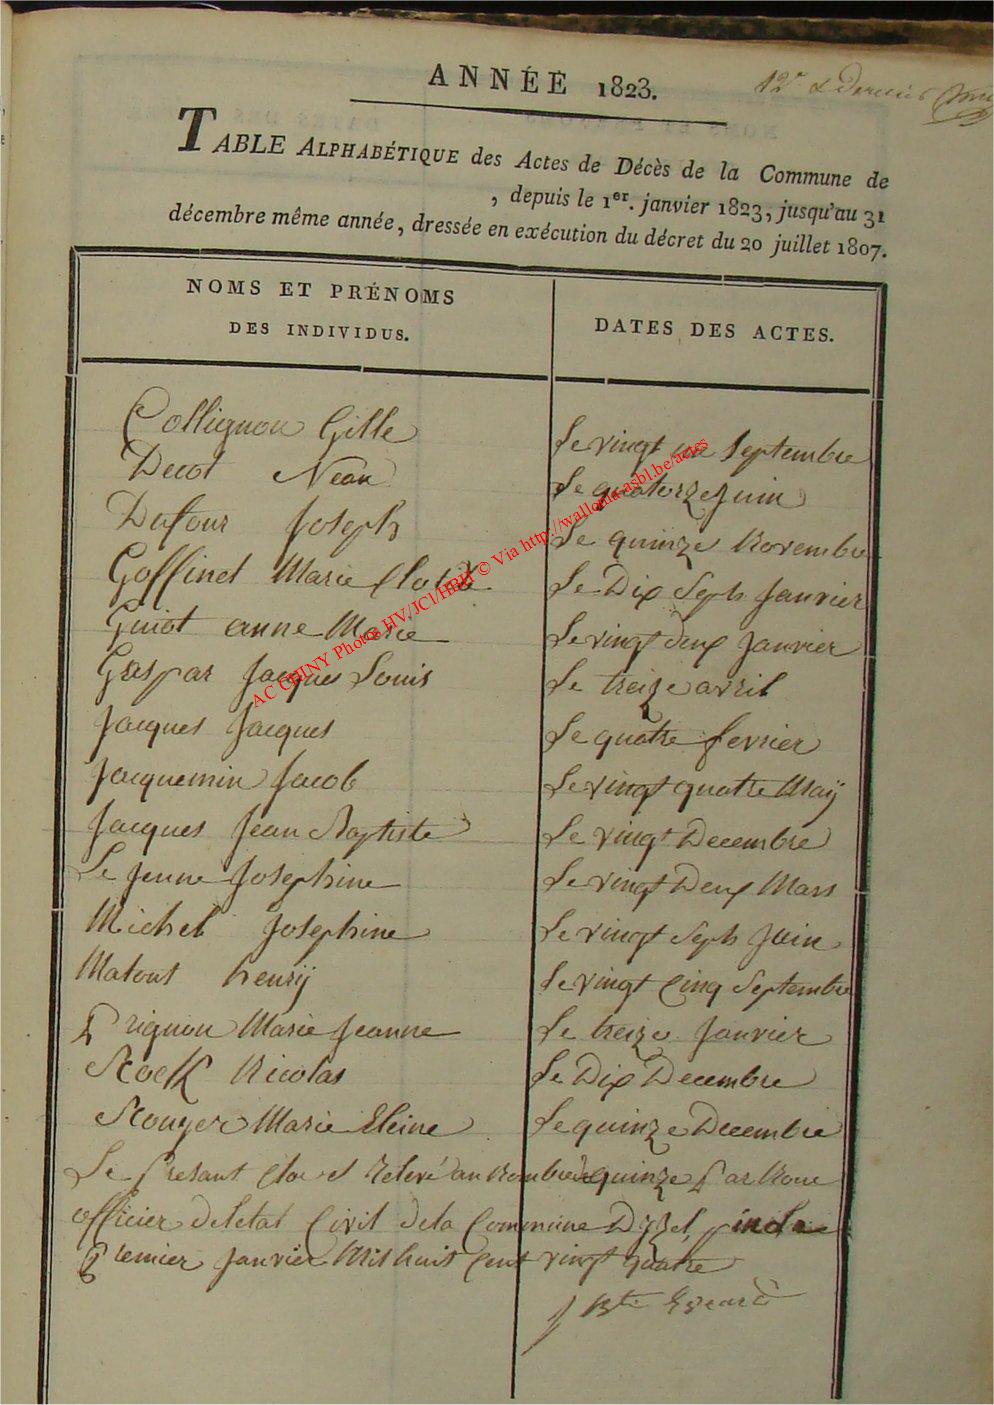 ANNÉE 1823.
12e & Dernier
TABLE ALPHABÉTIQUE des Actes de Décès de la Commune de
, depuis le 1er. janvier 1823, jusqu'au 31
décembre même année, dressée en exécution du décret du 20 juillet 1807.
NOMS ET PRÉNOMS
DES INDIVIDUS.
DATES DES ACTES.
Collignon Gille Le vingt une Septembre
Decot Le quatorze juin
Dufour Joseph Le quinze Novembre
Goffinet Marie Clotile Le Dix Sept Janvier
Guiot anne Marie Le vingt deux Janvier
Gaspar Jacques Louis Le treize avril
Jacques Jacques Le quatre fevrier
Jacquemin Jacob Le vingt quatre Maÿ
Jacques Jean Baptiste Le vingt Decembre
Le Jeune Josephine Le vingt Deux Mars
Michel Josephine Le vingt Sept Juin
Matout henrÿ Le vingt Cinq Septembre
Prignon Marie Jeanne Le treize Janvier
Nicolas Le Dix Decembre
Marie Eleine Le quinze Decembre
Le presant Clos et Relevé au Nombre de quinze par Nous
officier deletat Civil dela Commune D'izel,
Premier Janvier Mil huit Cent vingt quatre
AC CHINY Photos HV/JCl/HBH © Via http://wallonia-asbl.be/actes